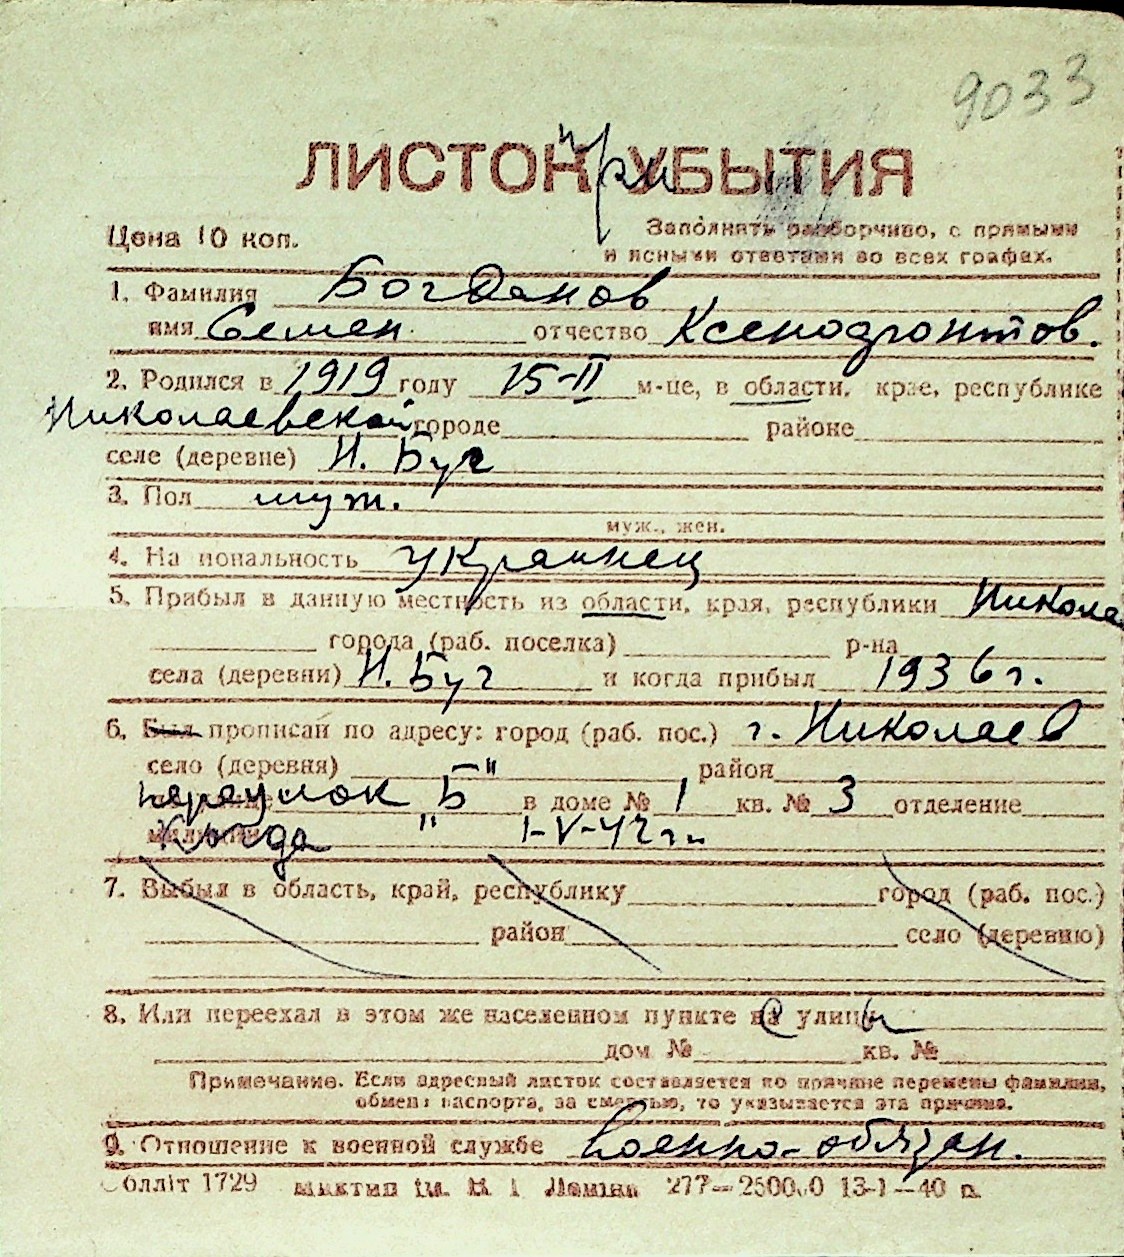 9033
ЛИСТОК УБЫТИЯ
при
Цена 10 коп.
Заполнять разборчиво, с прямыми
и ясными ответами во всех графах.
1. Фамилия Богданов
имя Семен отчество Ксенофонтов.
2. Родился в 1919 году 15-II м-це, в области, крае, республике
Николаевской городе районе
селе (деревне) Н. Буг
3. Пол муж.
муж., жен.
4. Национальность украинец
5. Прибыл в данную местность из области, края, республики Никола
города (раб. поселка) р-на
села (деревни) Н. Буг и когда прибыл 1936 г.
6. Был прописан по адресу: город (раб. пос.) г. Николаев
село (деревня) район
переулок Б" в доме № 1 кв. № 3 отделение
милиции " 1-V-42 г.
7. Выбыл в область, край, республику город (раб. пос.)
район село (деревню)
8. Или переехал в этом же населенном пункте на улицу
дом № кв. №
Примечание. Если адресный листок составляется по причине перемены фамилии,
обмена паспорта, за смертью, то указывается эта причина.
9. Отношение к военной службе военно-обязан.
Обллiт 1729 iм. 13-I-40 р.